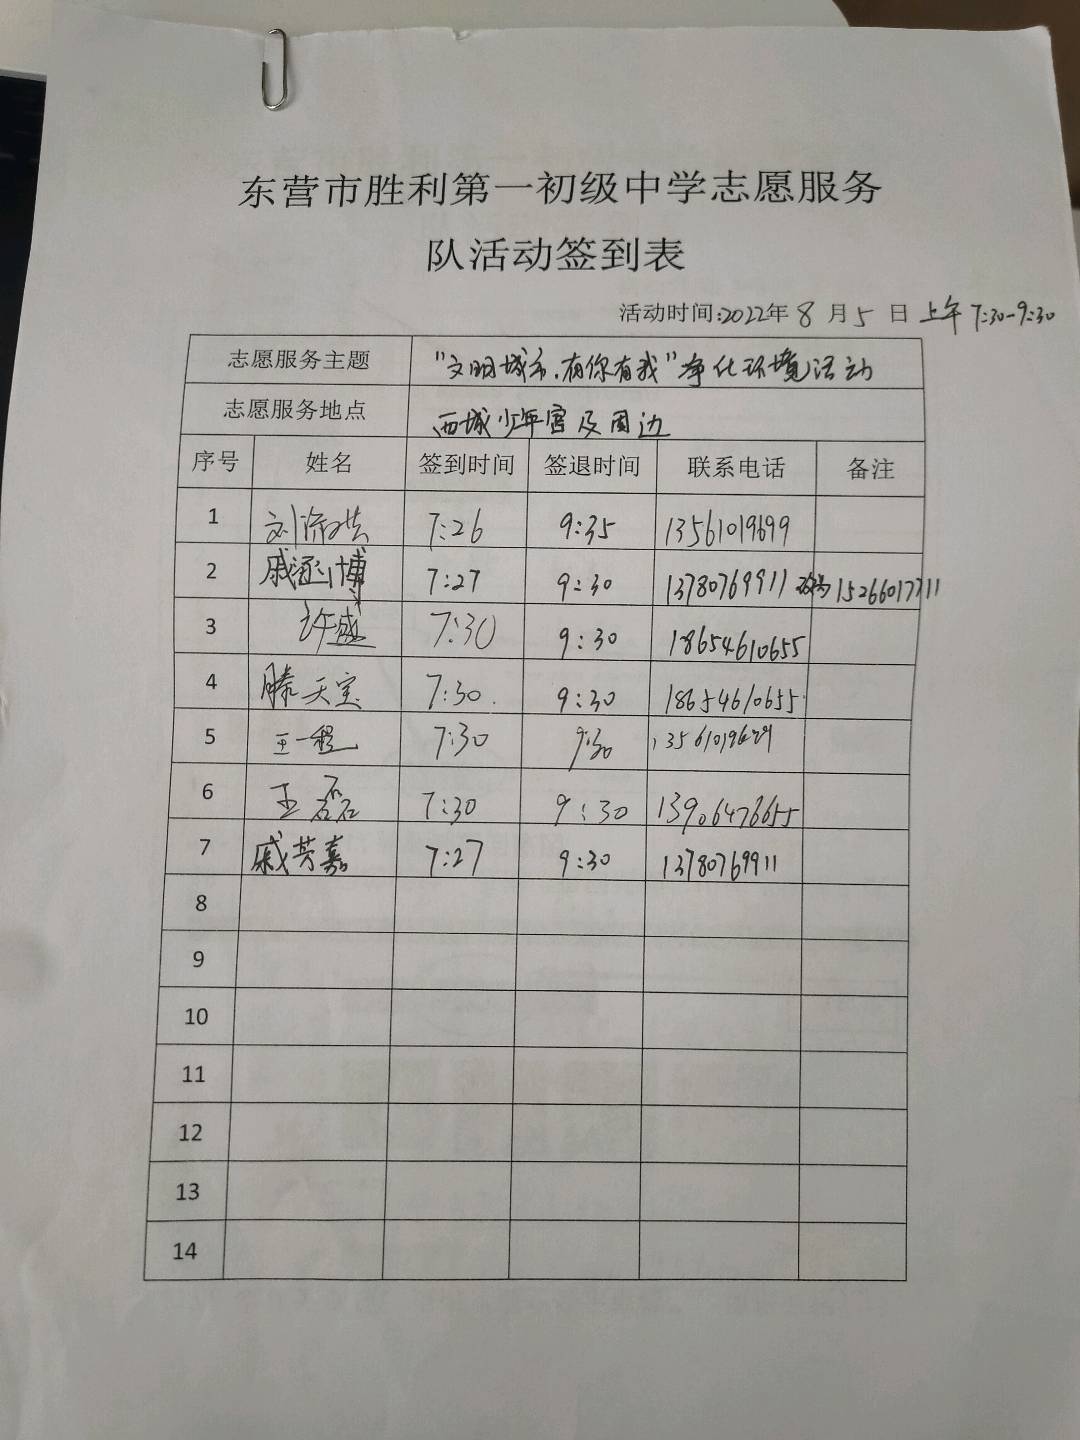 东营市胜利第一初级中学志愿服务
队活动签到表
活动时间:2022年 8 月 5 日 上午 7:30-9:30
志愿服务主题 "文明城市,有你有我"净化环境活动
志愿服务地点 西城少年宫及周边
序号 姓名 签到时间 签退时间 联系电话 备注
1 刘 7:26 9:35 13561019699
2 戚涵博 7:27 9:30 13780769911 改为
3 许盛 7:30 9:30 18654610655
4 滕天宝 7:30. 9:30 18654610655
5 王一程 7:30 9:30
6 王磊 7:30 9:30 13906476655
7 戚芸嘉 7:27 9:30 13780769911
8
9
10
11
12
13
14